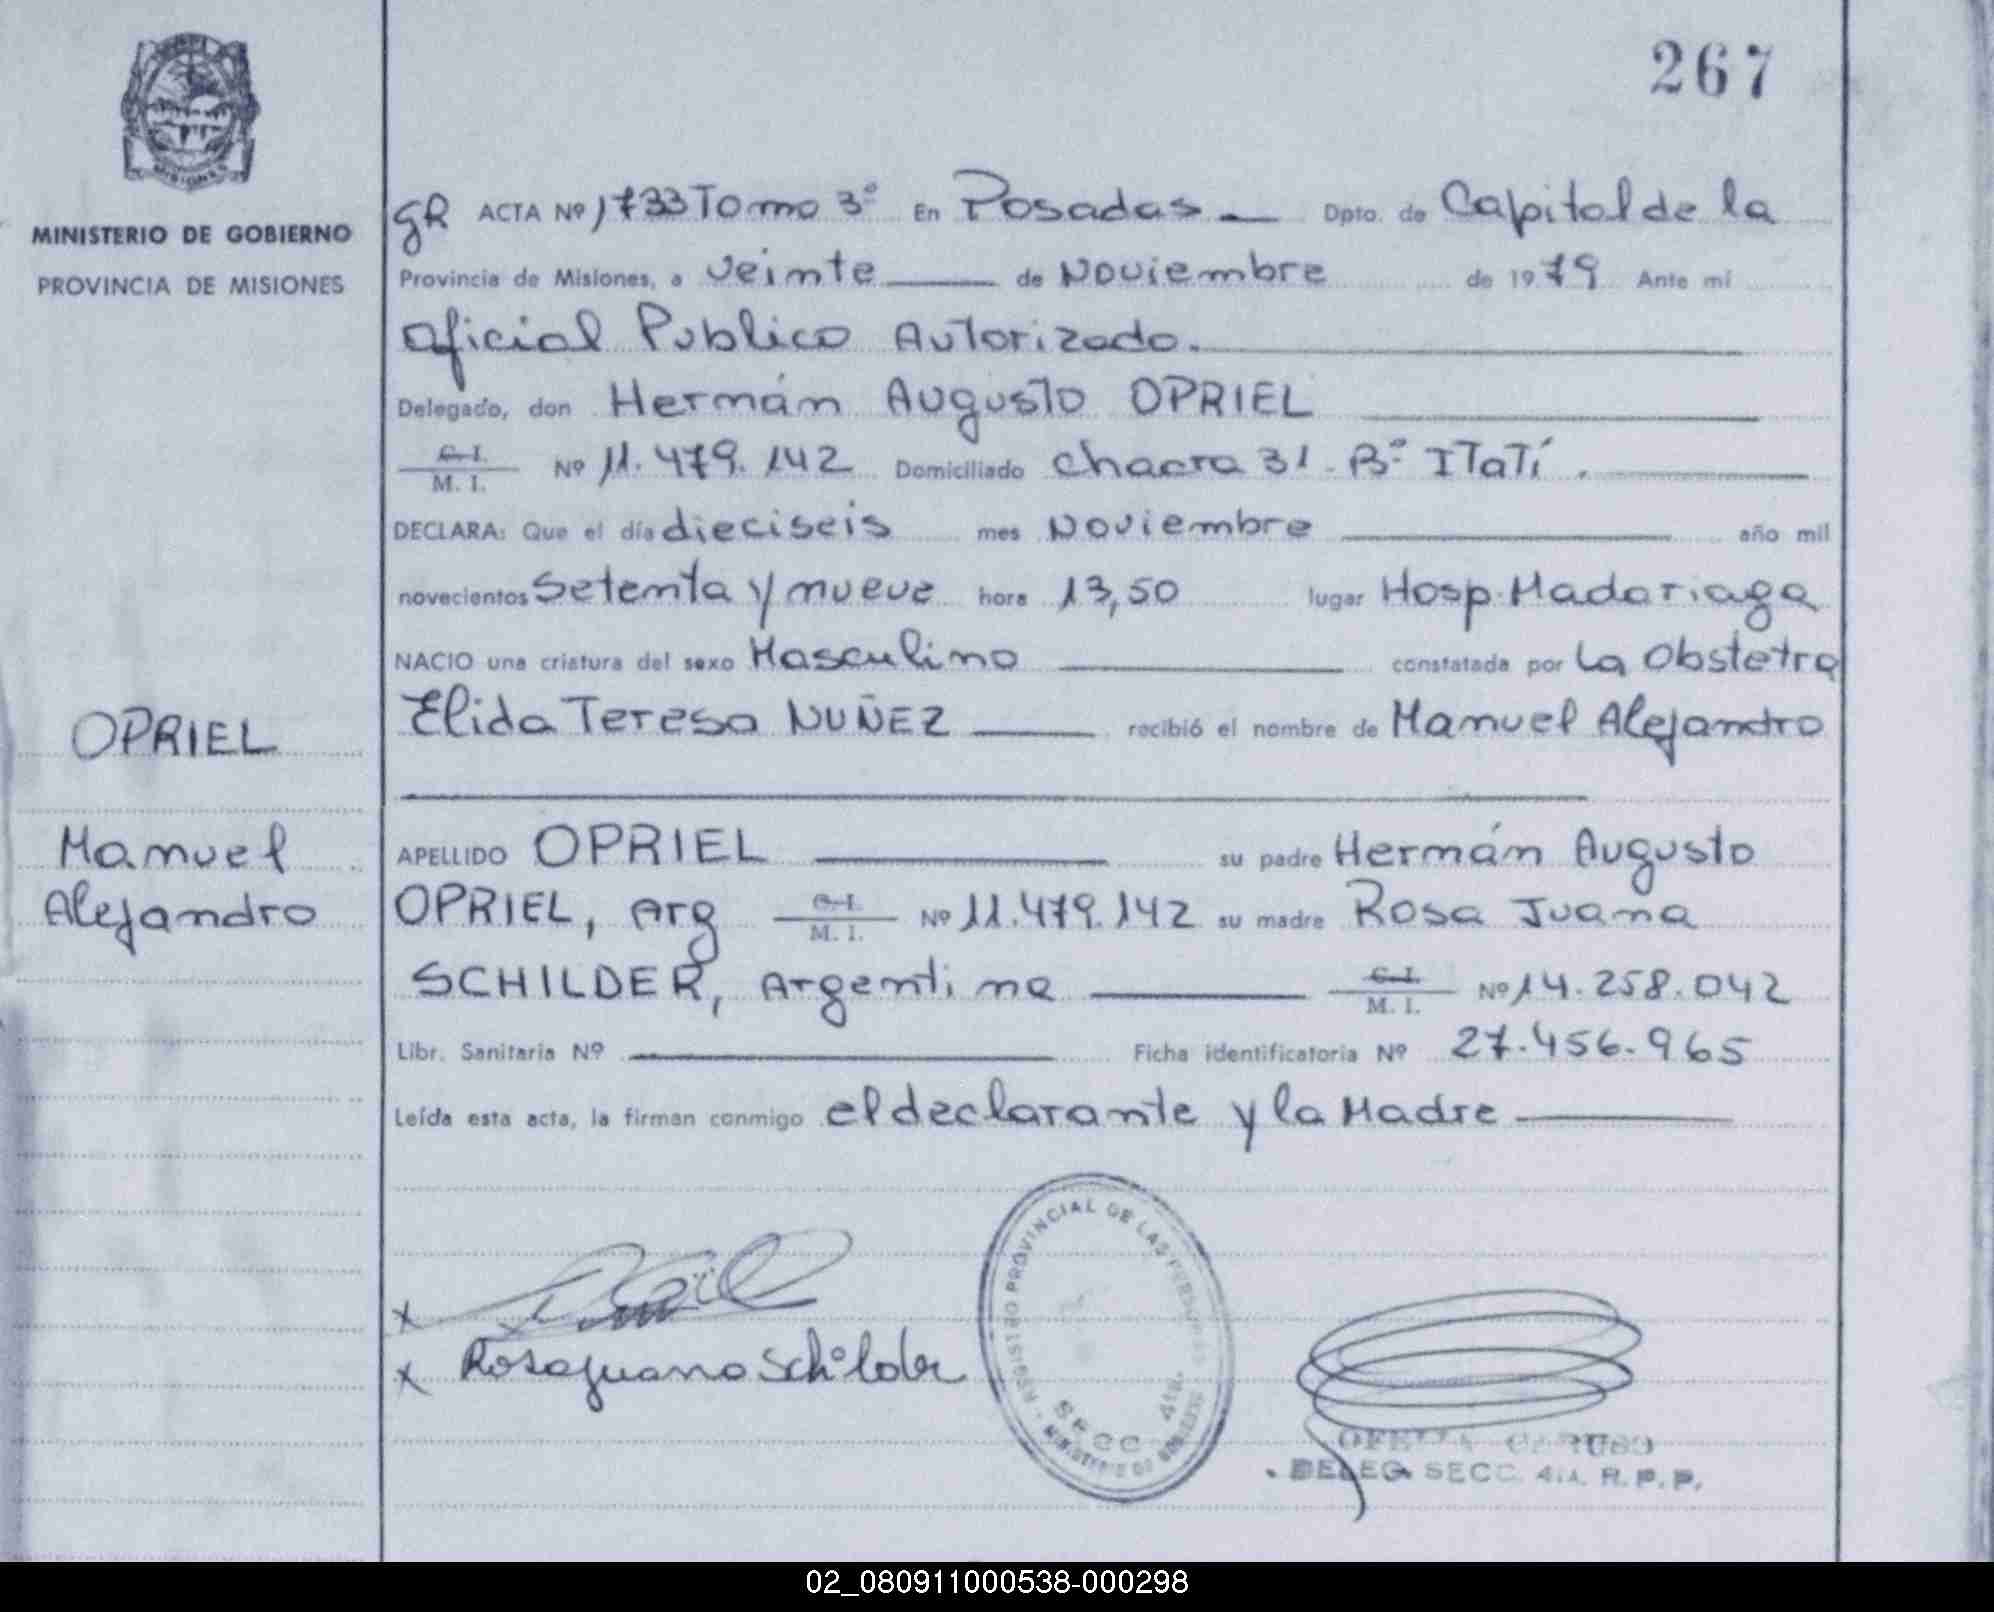 267
MISIONES
MINISTERIO DE GOBIERNO
PROVINCIA DE MISIONES
gR ACTA Nº 1733 Tomo 3º En Posadas Dpto. de Capital de la
Provincia de Misiones, a veinte de Noviembre de 1979 Ante mi
Oficial Publico Autorizado.
Delegado, don Hermán Augusto OPRIEL
C. I.
M. I. Nº 11.479.142 Domiciliado Chacra 31 - Bº ITaTí.
DECLARA: Que el día dieciseis mes Noviembre año mil
novecientos Setenta y nueve hora 13,50 lugar Hosp. Madariaga
NACIO una criatura del sexo Masculino constatada por La Obstetra
Elida Teresa NUÑEZ recibió el nombre de Manuel Alejandro
OPRIEL
Manuel
Alejandro
APELLIDO OPRIEL su padre Hermán Augusto
OPRIEL, Arg C. I.
M. I. Nº 11.479.142 su madre Rosa Juana
SCHILDER, Argentina C. I.
M. I. Nº 14.258.042
Libr. Sanitaria Nº Ficha identificatoria Nº 27.456.965
Leída esta acta, la firman conmigo el declarante y la Madre
x
x Rosa Juana Schilder
REGISTRO PROVINCIAL DE LAS PERSONAS
SECC. 4ta.
MINISTERIO DE GOBIERNO
DELEG. SECC. 4ta. R. P. P.
02_080911000538-000298